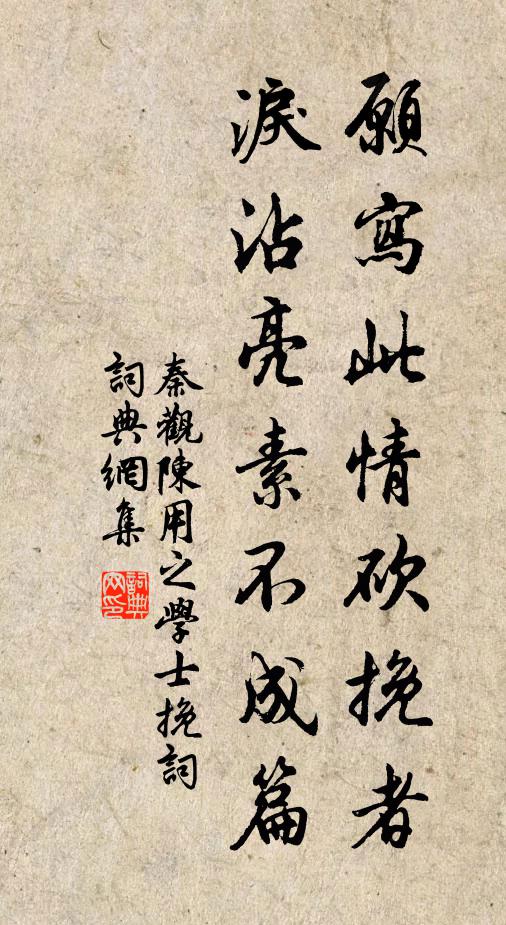 願寫此情砍挽者
淚沾亮素不成篇
秦觀陳用之學士挽詞
詞典網集
詞典
网印